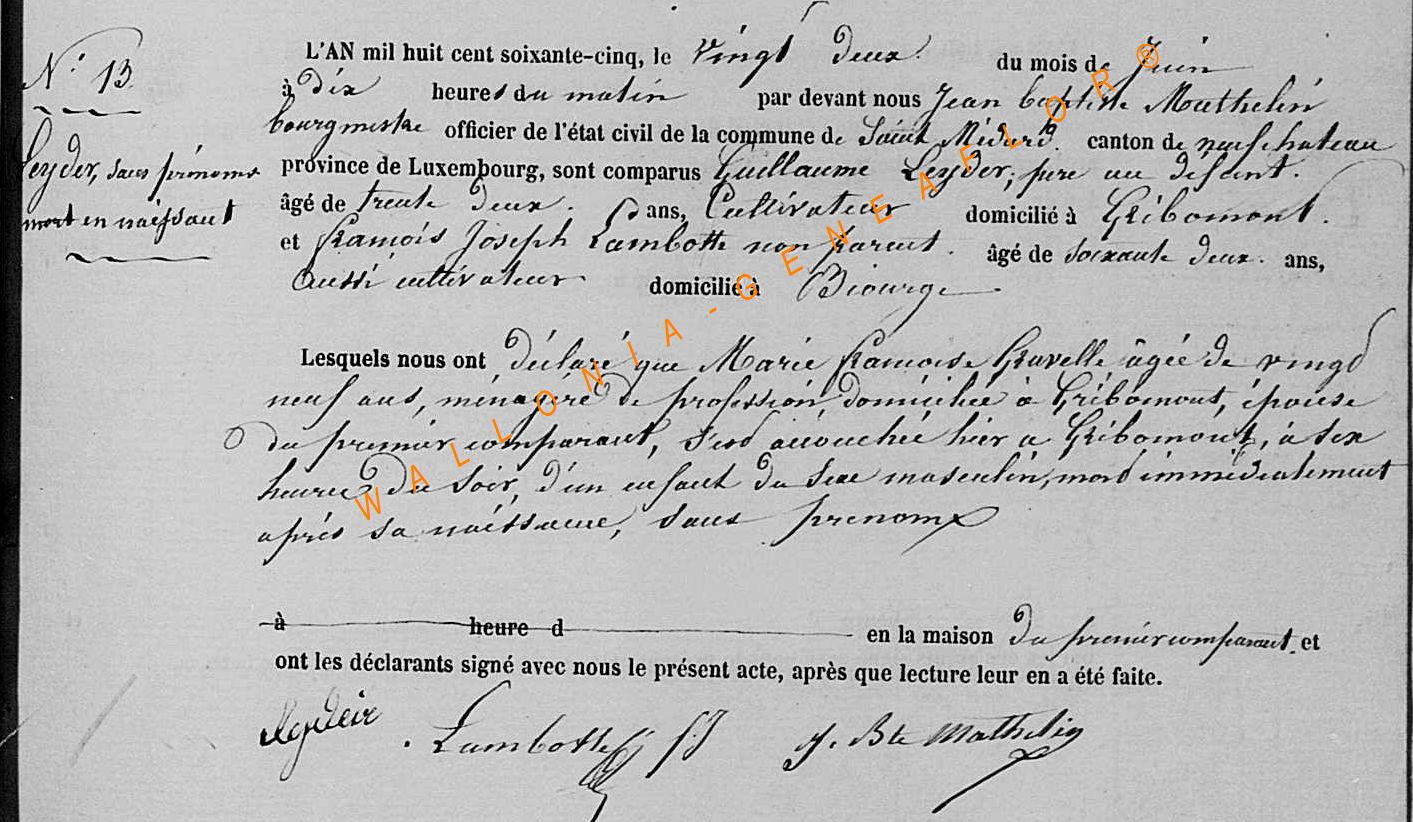 N° 13.
Leyder, sans prénoms
mort en naissant
L'AN mil huit cent soixante-cinq, le vingt deux. du mois de Juin
à dix heures du matin par devant nous Jean baptiste Mathelin
bourgmestre officier de l'état civil de la commune de Saint Médard. canton de neufchateau
province de Luxembourg, sont comparus Guillaume Leyder, père au défunt.
âgé de trente deux. ans, Cultivateur domicilié à Gribomont.
et François Joseph Lambotte non parent. âgé de soixante deux. ans,
Aussi cultivateur domicilié à Biourge
Lesquels nous ont déclaré que Marie françoise Gravelle, âgée de vingt
neuf ans, ménagère de profession, domiciliée à Gribomont, épouse
du premier comparant, s'est accouchée hier a Gribomont, à six
heures du soir, d'un enfant du sexe masculin, mort immédiatement
après sa naissance, sans prenoms
à heure d en la maison du premier comparant. et
ont les déclarants signé avec nous le présent acte, après que lecture leur en a été faite.
Lambotte fJ J. Bte Mathelin
WALLONIA-GENEAFLOR®